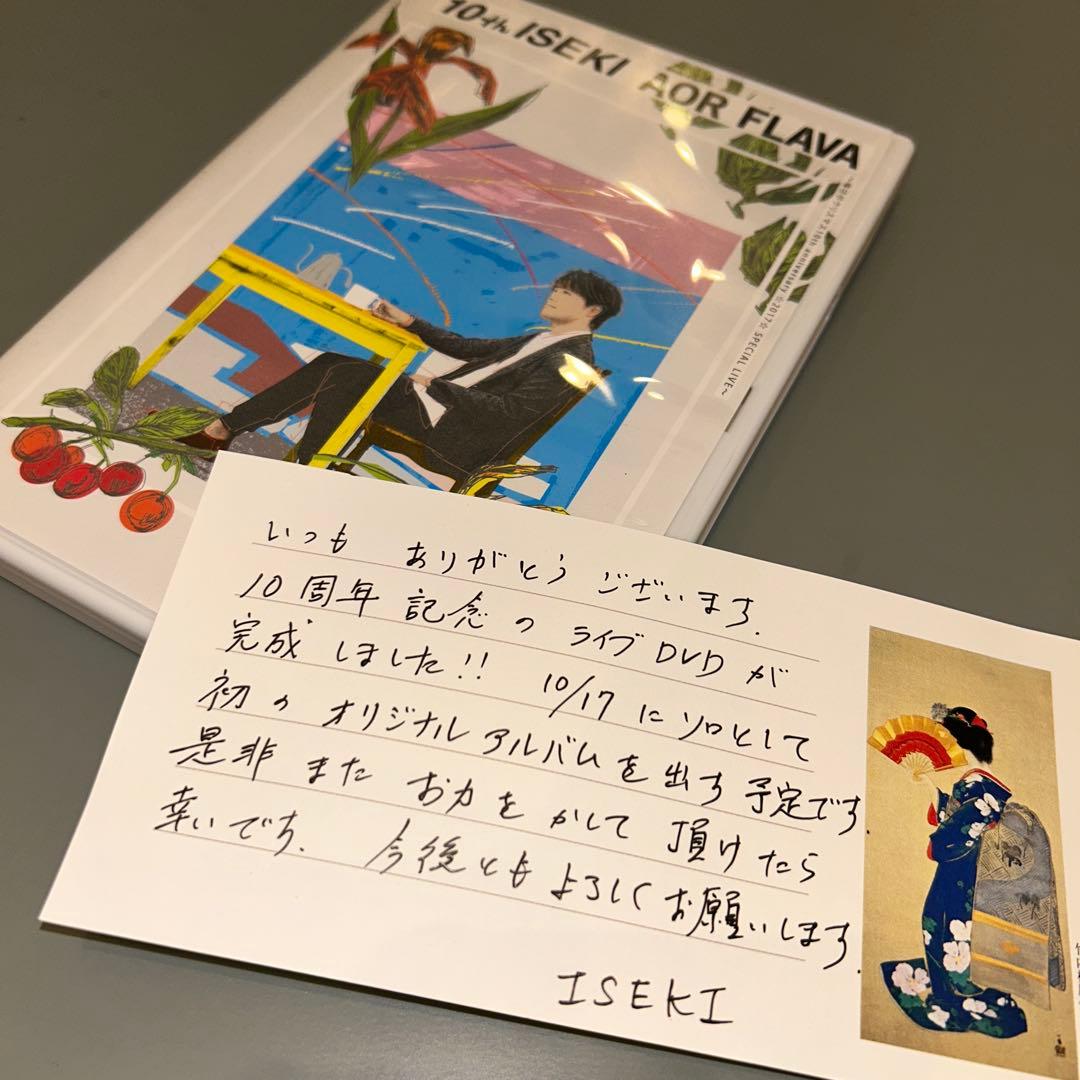 10th ISEKI AOR FLAVA
10th anniversary ☆2017☆ SPECIAL LIVE~
いつも ありがとう ございます.
10周年 記念の ライブDVDが
完成しました!! 10/17にソロとして
初の オリジナルアルバムを出す予定です.
是非 また お力を かして 頂けたら
幸いです. 今後とも よろしくお願いします.
ISEKI